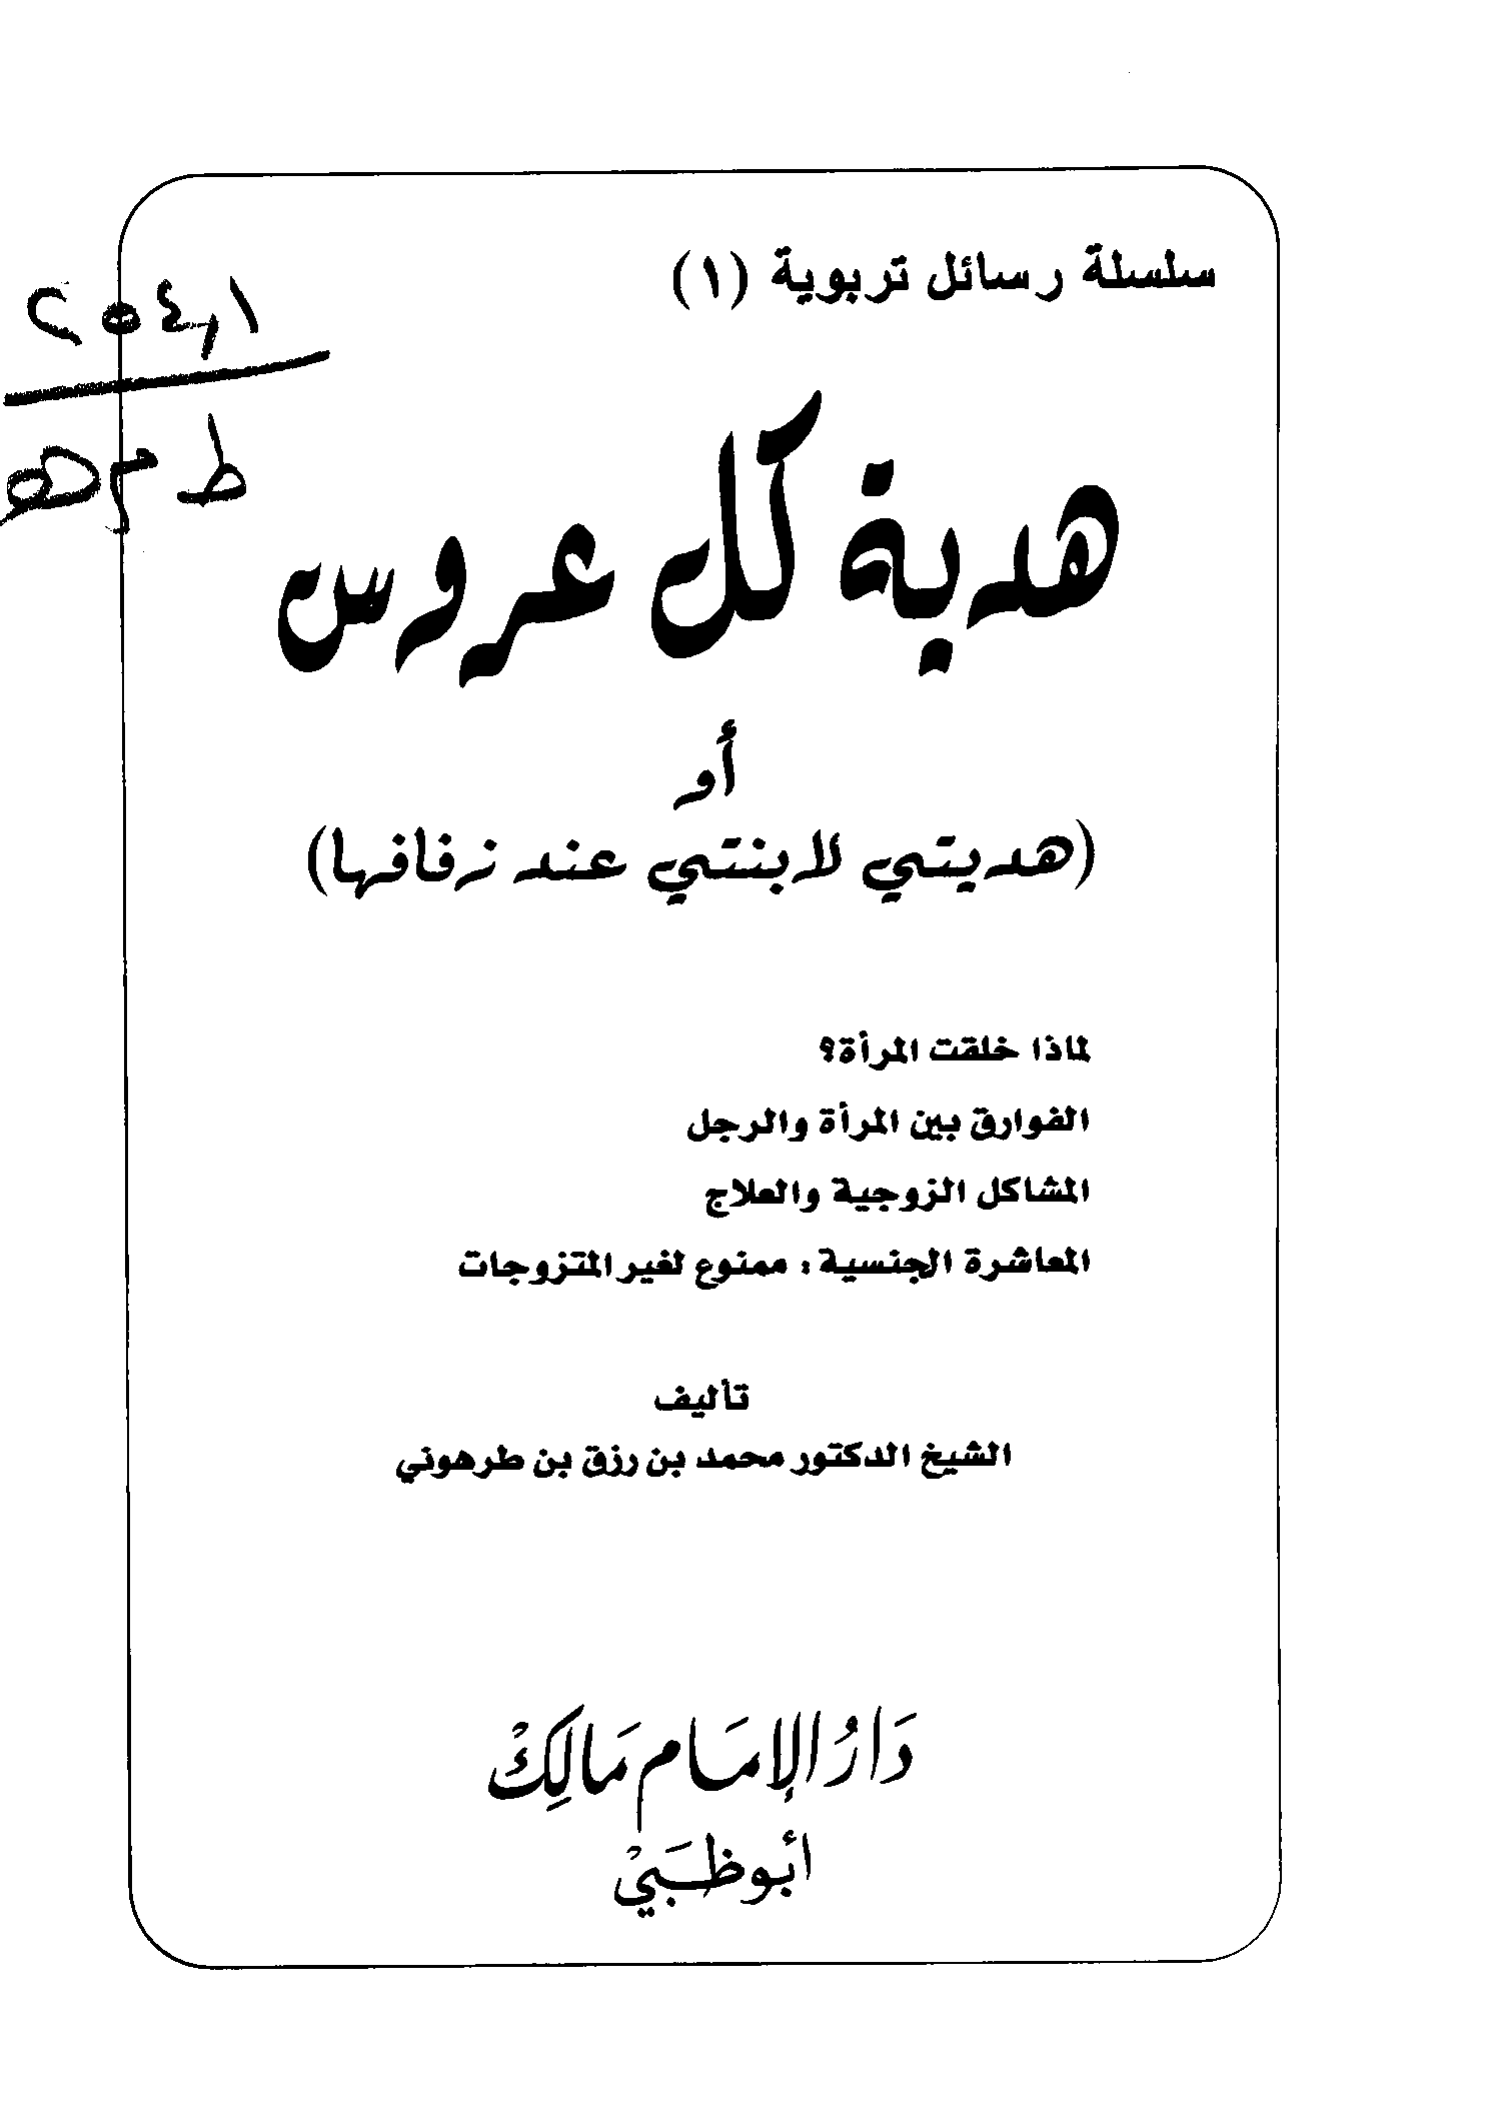 سلسلة رسائل تربوية (١)
٢٥٤,١
ط م هـ
هدية كل عروس
أو
(هديتي لابنتي عند زفافها)
لماذا خلقت المرأة؟
الفوارق بين المرأة والرجل
المشاكل الزوجية والعلاج
المعاشرة الجنسية : ممنوع لغير المتزوجات
تأليف
الشيخ الدكتور محمد بن رزق بن طرهوني
دَارُ الإِمَام مَالِكْ
أبوظَبَيْ